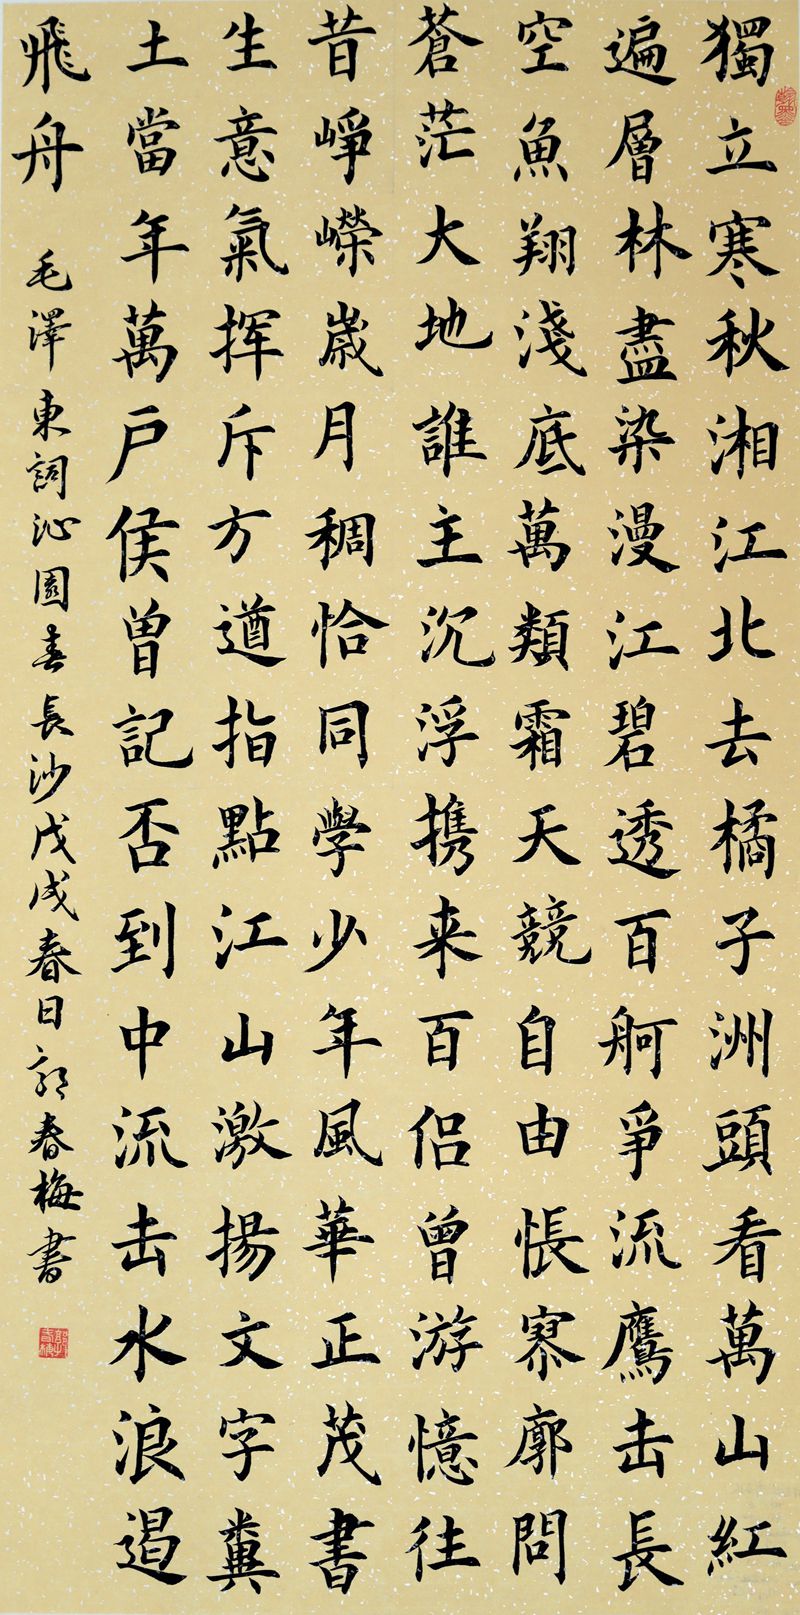 獨立寒秋湘江北去橘子洲頭看萬山紅
遍層林盡染漫江碧透百舸爭流鷹击長
空魚翔淺底萬類霜天競自由悵寥廓問
蒼茫大地誰主沉浮携来百侣曾游憶往
昔崢嶸歲月稠恰同學少年風華正茂書
生意氣挥斥方遒指點江山激揚文字糞
土當年萬戶侯曾記否到中流击水浪遏
飛舟
毛澤東詞沁園春長沙戊戌春日郭春梅書